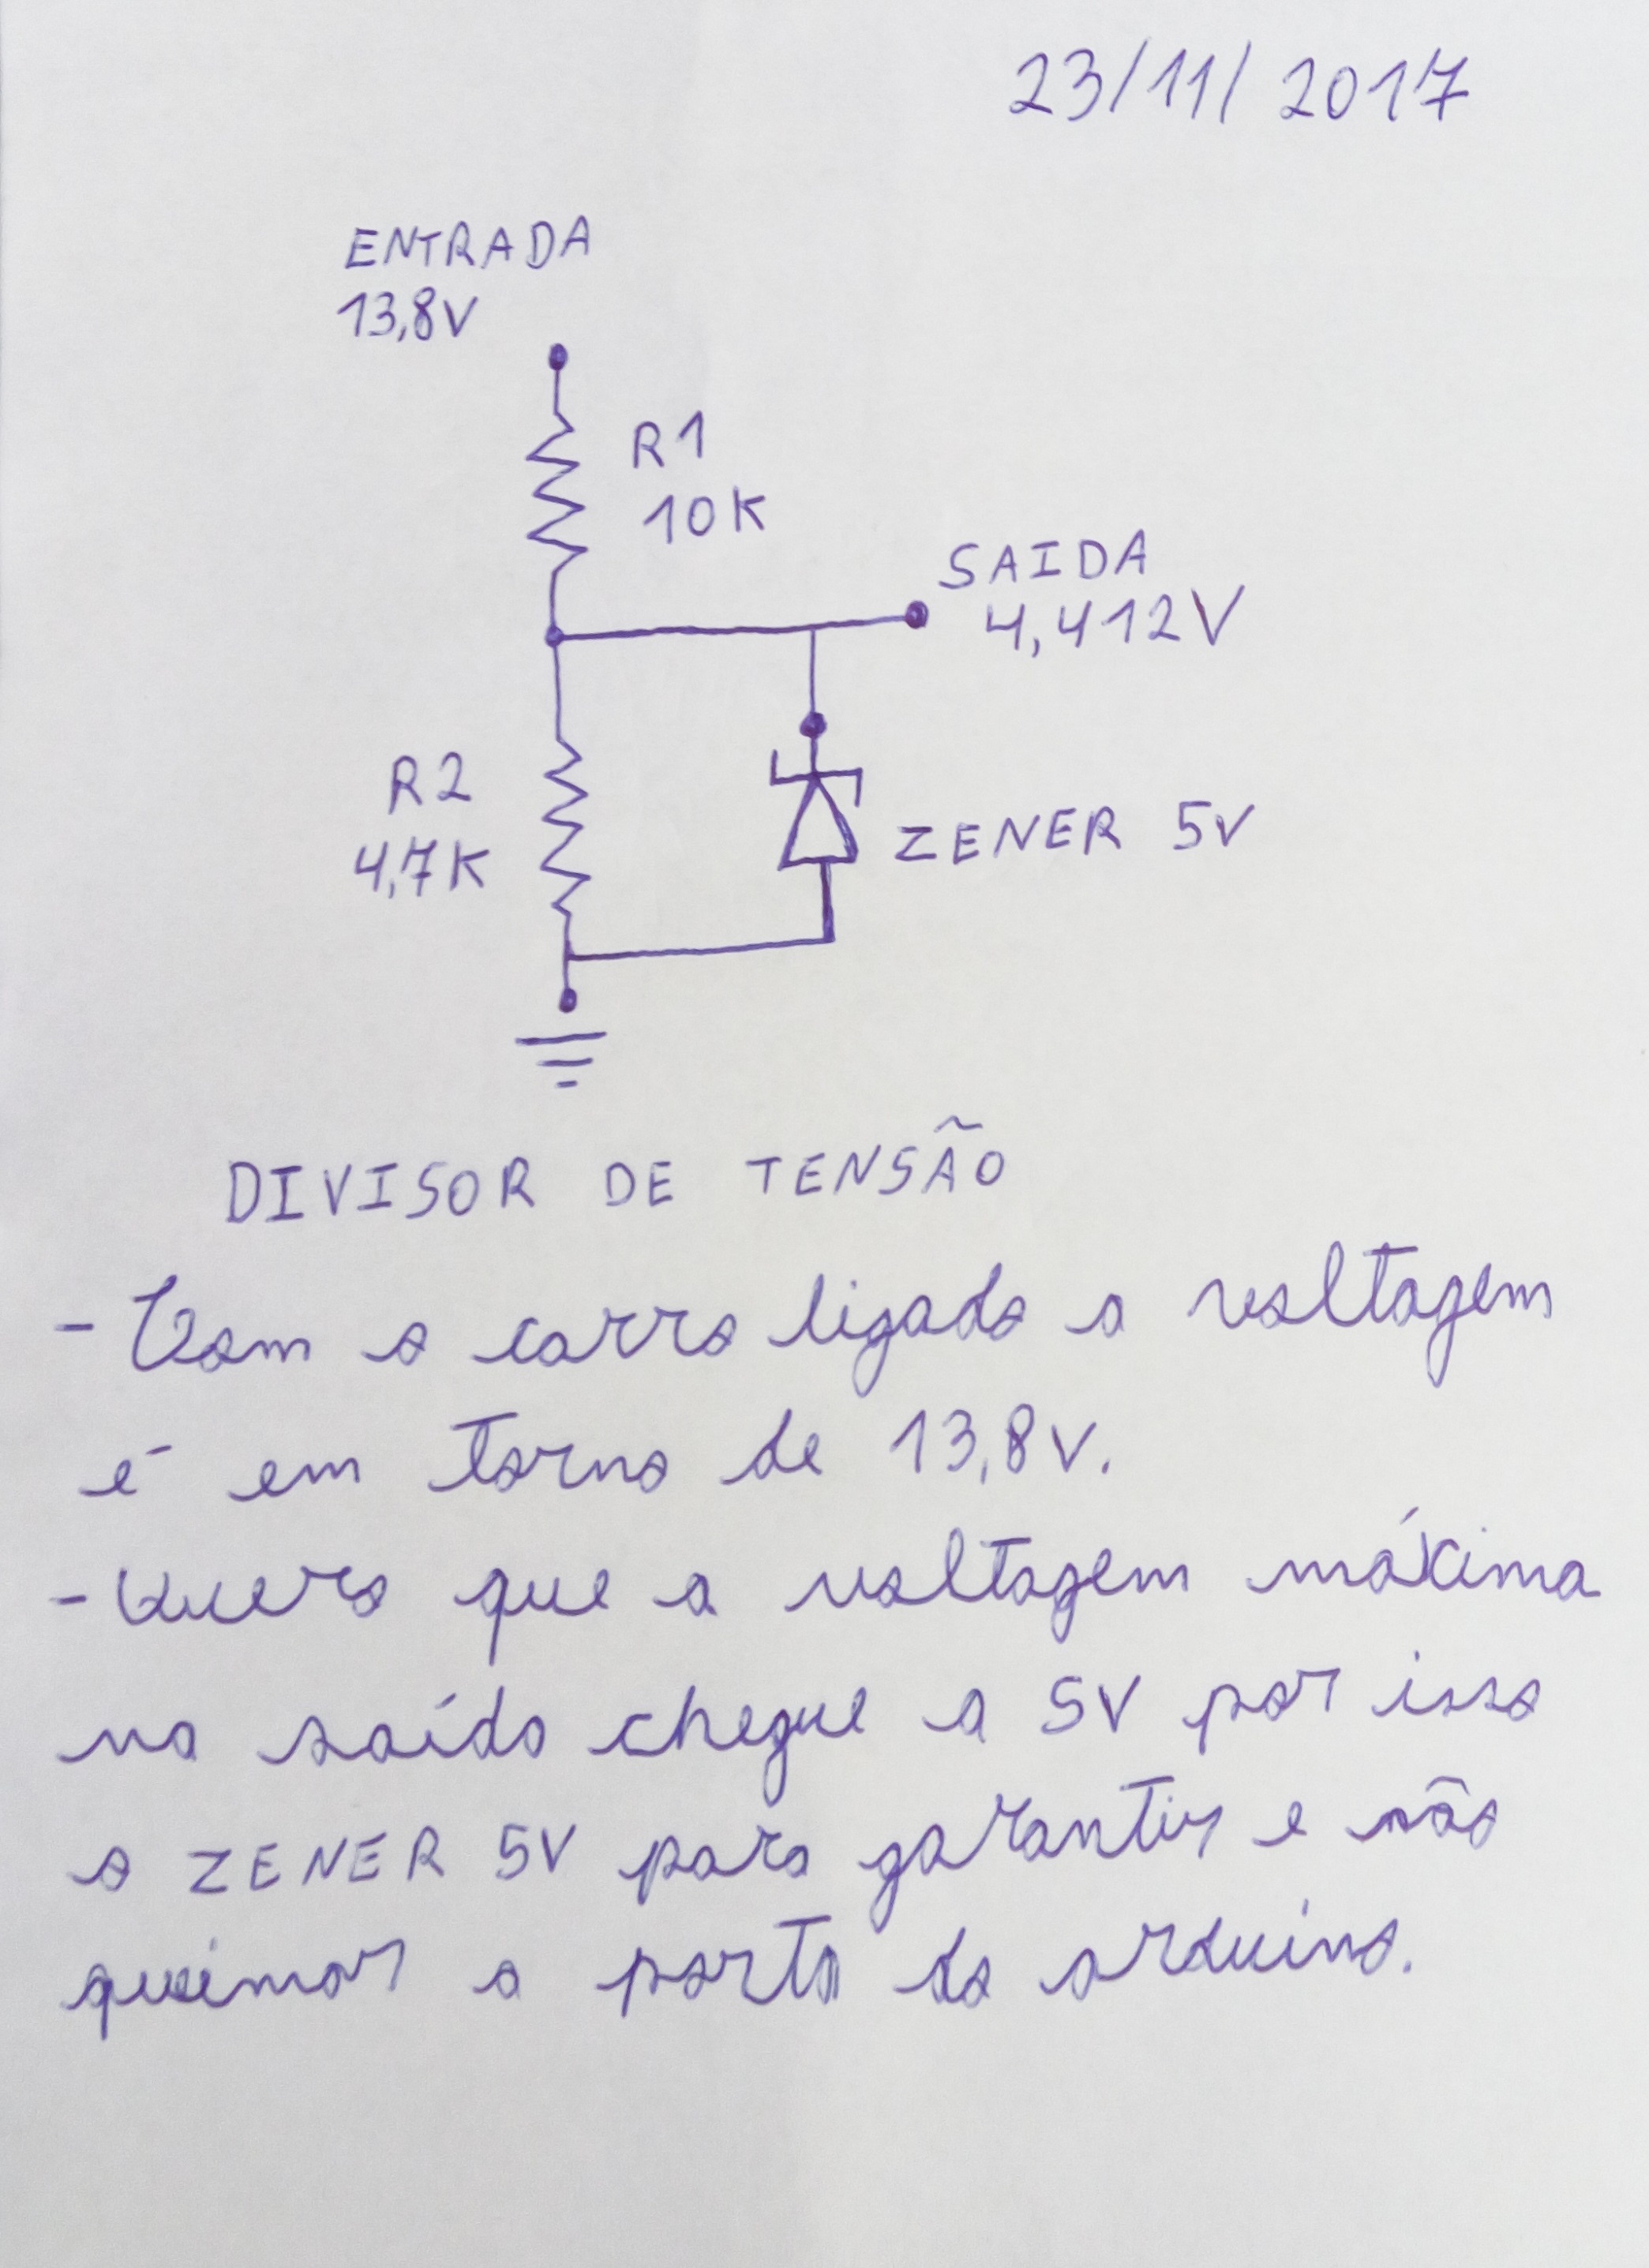 23/11/2017
ENTRADA
13,8V
R1
10K
SAIDA
4,412V
R2
4,7K
ZENER 5V
DIVISOR DE TENSÃO
- Com o carro ligado a voltagem
é em torno de 13,8V.
- Quero que a voltagem máxima
na saída chegue a 5V por isso
o ZENER 5V para garantir e não
queimar a porta do arduino.